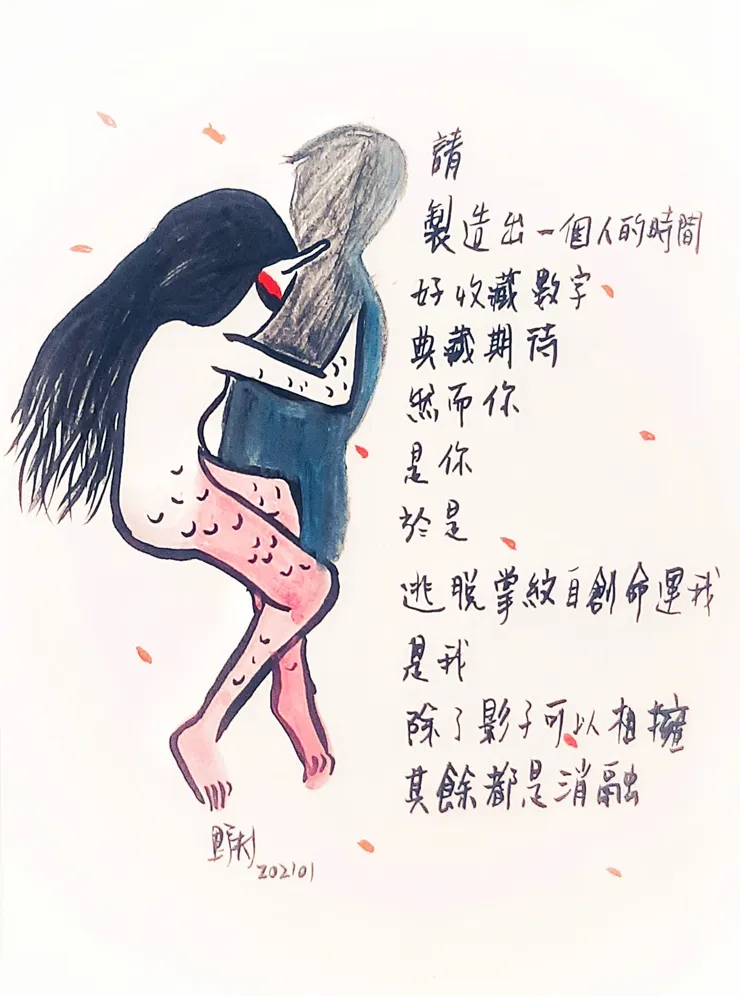 請
製造出一個人的時間
好收藏數字
典藏期待
然而你
是你
於是
逃脫掌紋自創命運我
是我
除了影子可以相擁
其餘都是消融
202101